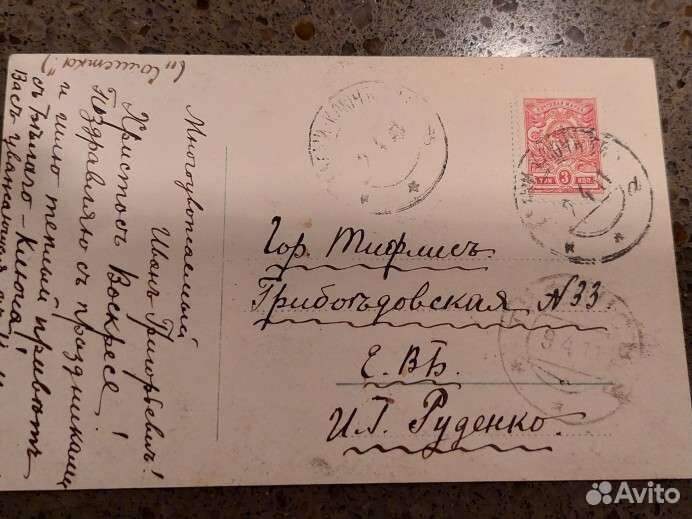 ("Солистка")
Многоуважаемый
Иванъ Григорьевичъ!
Христосъ Воскресе!
Поздравляю съ праздниками
и шлю теплый привѣтъ
съ Бѣлаго-Ключа!
Васъ уважающая
3
Гор. Тифлисъ
Грибоѣдовская N33
Е. ВБ.
И.Г. Руденко.
Avito